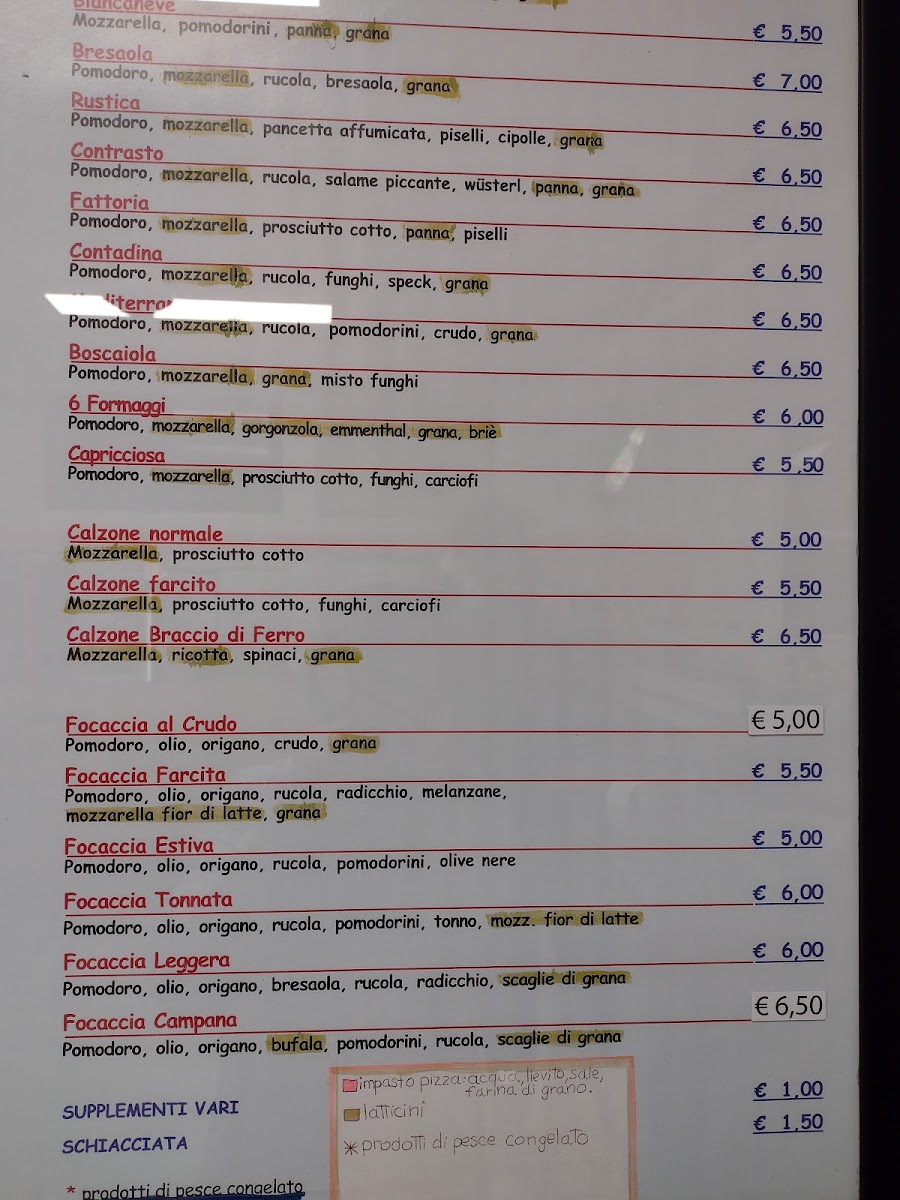 Biancaneve
Mozzarella, pomodorini, panna, grana € 5,50
Bresaola
Pomodoro, mozzarella, rucola, bresaola, grana € 7,00
Rustica
Pomodoro, mozzarella, pancetta affumicata, piselli, cipolle, grana € 6,50
Contrasto
Pomodoro, mozzarella, rucola, salame piccante, wüsterl, panna, grana € 6,50
Fattoria
Pomodoro, mozzarella, prosciutto cotto, panna, piselli € 6,50
Contadina
Pomodoro, mozzarella, rucola, funghi, speck, grana € 6,50
Pomodoro, mozzarella, rucola, pomodorini, crudo, grana € 6,50
Boscaiola € 6,50
Pomodoro, mozzarella, grana, misto funghi
6 Formaggi € 6,00
Pomodoro, mozzarella, gorgonzola, emmenthal, grana, briè
Capricciosa € 5,50
Pomodoro, mozzarella, prosciutto cotto, funghi, carciofi
Calzone normale € 5,00
Mozzarella, prosciutto cotto
Calzone farcito € 5,50
Mozzarella, prosciutto cotto, funghi, carciofi
Calzone Braccio di Ferro € 6,50
Mozzarella, ricotta, spinaci, grana
Focaccia al Crudo € 5,00
Pomodoro, olio, origano, crudo, grana
Focaccia Farcita € 5,50
Pomodoro, olio, origano, rucola, radicchio, melanzane,
mozzarella fior di latte, grana
Focaccia Estiva € 5,00
Pomodoro, olio, origano, rucola, pomodorini, olive nere
Focaccia Tonnata € 6,00
Pomodoro, olio, origano, rucola, pomodorini, tonno, mozz. fior di latte
Focaccia Leggera € 6,00
Pomodoro, olio, origano, bresaola, rucola, radicchio, scaglie di grana
Focaccia Campana € 6,50
Pomodoro, olio, origano, bufala, pomodorini, rucola, scaglie di grana
impasto pizza: acqua, lievito, sale,
farina di grano.
latticini
* prodotti di pesce congelato
SUPPLEMENTI VARI € 1,00
SCHIACCIATA € 1,50
* prodotti di pesce congelato